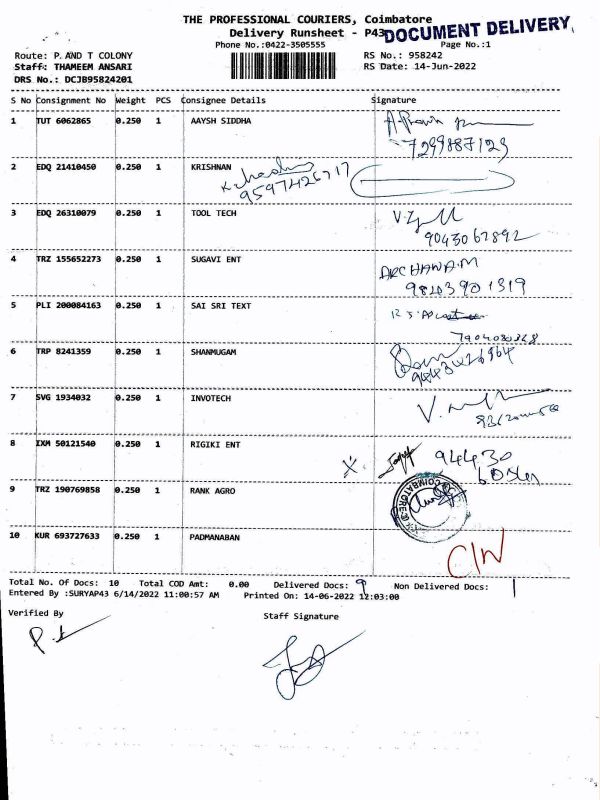 THE PROFESSIONAL COURIERS, Coimbatore
Delivery Runsheet - P43
DOCUMENT DELIVERY
Phone No.:0422-3505555
Page No.:1
Route: P. AND T COLONY
RS No.: 958242
Staff: THAMEEM ANSARI
RS Date: 14-Jun-2022
DRS No.: DCJB95824201
S No Consignment No Weight PCS Consignee Details Signature
1 TUT 6062865 0.250 1 AAYSH SIDDHA
7299887129
2 EDQ 21410450 0.250 1 KRISHNAN
9597426717
3 EDQ 26310079 0.250 1 TOOL TECH
9043067892
4 TRZ 155652273 0.250 1 SUGAVI ENT ARCHANA.M
5 PLI 200084163 0.250 1 SAI SRI TEXT
6 TRP 8241359 0.250 1 SHANMUGAM
7 SVG 1934032 0.250 1 INVOTECH
8 IXM 50121540 0.250 1 RIGIKI ENT
94430
9 TRZ 190769858 0.250 1 RANK AGRO
COIMBATORE
10 KUR 693727633 0.250 1 PADMANABAN
Total No. Of Docs: 10 Total COD Amt: 0.00 Delivered Docs: 9 Non Delivered Docs: 1
Entered By :SURYAP43 6/14/2022 11:00:57 AM Printed On: 14-06-2022 12:03:00
Verified By
Staff Signature